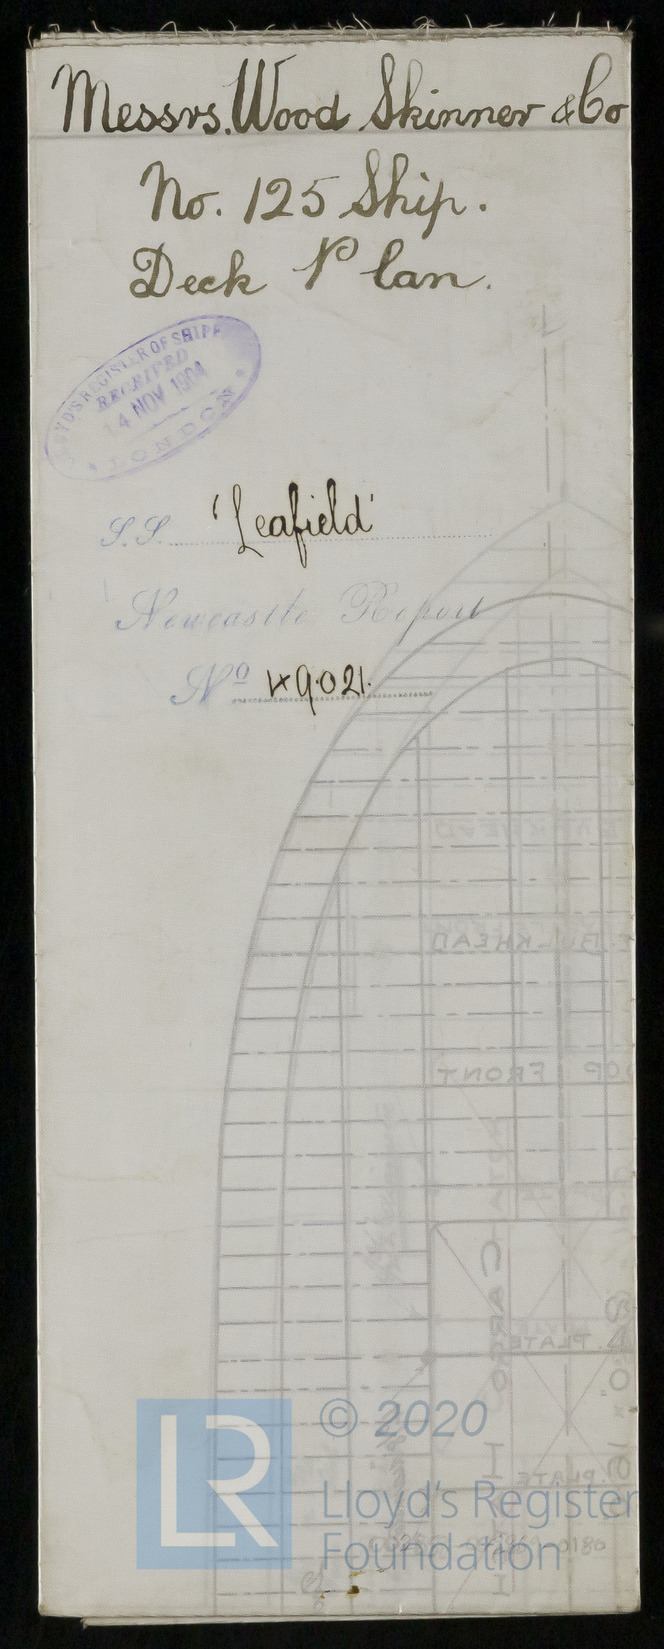 Messrs. Wood Skinner & Co
No. 125 Ship.
Deck Plan.
LLOYD'S REGISTER OF SHIPP
RECEIVED
14 NOV 1904
LONDON
S.S. 'Leafield'
Newcastle Report
No 49021.
BULKHEAD
FRONT
CARGO
PLATE
PLATE
LR
© 2020
Lloyd's Register
Foundation